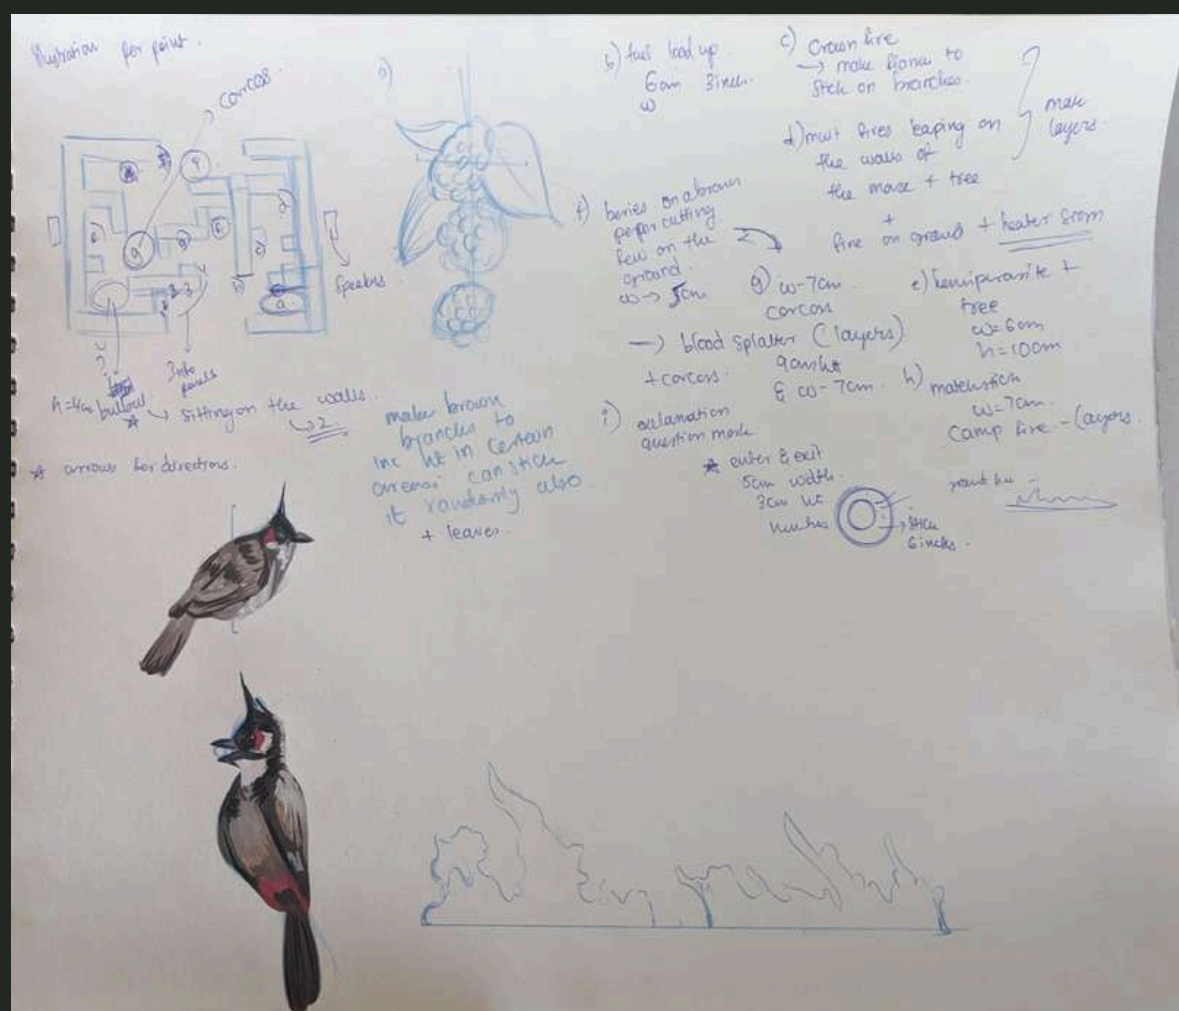 Illustration per point.
carcas
speakers
Info
panels
sitting on the walls.
2
arrows for directions.
make brown
branches to
inc ht in certain
areas. can stick
it randomly also
+ leaves.
b) fuel load up
6cm 3inch
w
c) Crown fire
→ make flames to
stick on branches.
d) mult fires leaping on
the walls of
the maze + tree
+
fire on ground + heater from
make
layers.
f) berries on a brown
paper cutting
few on the
ground.
w → 5cm
g) w-7cm
carcass
→ blood splatter (layers)
+ carcass.
& w-7cm.
e) hemiparasite +
tree
w=6cm
h=10cm
h) matchstick
w=7cm.
Camp fire - layers.
i) exclamation
question mark
enter & exit
5cm width.
3cm ht
stick
6 inches.